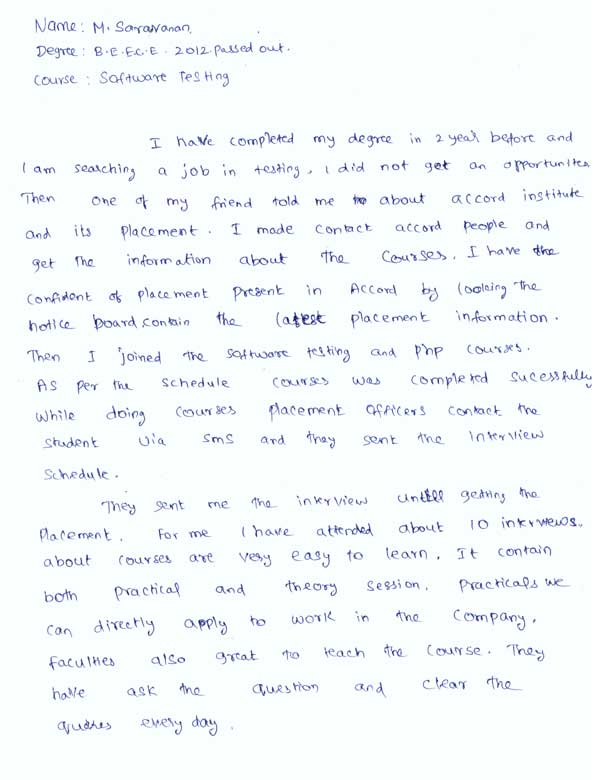 Name: M. Saravanan.
Degree: B.E. E.C.E. 2012. Passed out.
Course: Software Testing
I have completed my degree in 2 year before and
I am searching a job in testing, I did not get an opportunites
Then one of my friend told me about accord institute
and its placement. I made contact accord people and
get the information about the courses. I have the
confident of placement present in Accord by looking the
notice board contain the latest placement information.
Then I joined the software testing and php courses.
As per the schedule courses was completed sucessfully
While doing courses placement officers contact the
student via sms and they sent the interview
schedule.
They sent me the interview untill getting the
placement. For me I have attended about 10 interviews.
about courses are very easy to learn. It contain
both practical and theory session. practicals we
can directly apply to work in the company.
faculties also great to teach the course. They
have ask the question and clear the
quires every day.